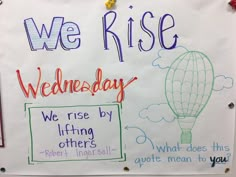 We Rise
Wednesday
We rise by
lifting
others
-Robert Ingersoll-
What does this
quote mean to you